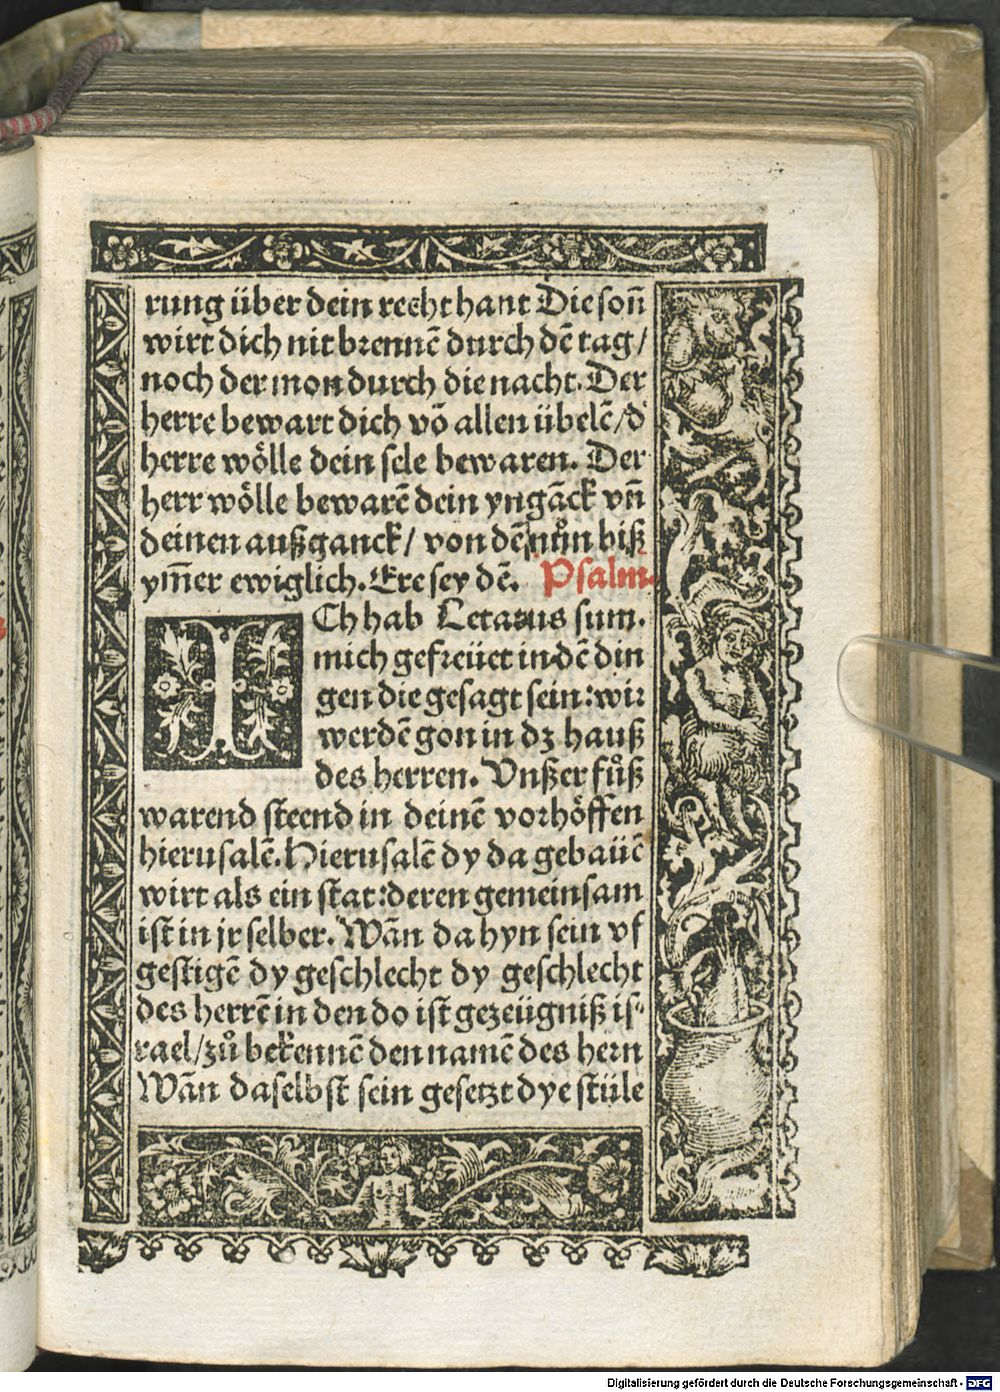 rung über dein recht hant Die soñ
wirt dich nit brennē durch dē tag/
noch der mon durch die nacht. Der
herre bewart dich vō allen übelē/d'
herre wölle dein sele bewaren. Der
herr wölle bewarē dein yngāck vñ
deinen außganck/ von dē nůn biß
ym̄er ewiglich. Ere sey dē. Psalm.
ICh hab Letatus sum.
mich gefreüet in dē din
gen die gesagt sein: wir
werdē gon in dz hauß
des herren. Vnßer fůß
warend steend in deinē vorhöffen
hierusalē. Hierusalē dy da gebaüē
wirt als ein stat: deren gemeinsam
ist in jr selber. Wān da hyn sein vf
gestigē dy geschlecht dy geschlecht
des herrē in den do ist gezeügniß is⸗
rael/zů bekennē den namē des hern
Wān daselbst sein gesetzt dye stüle
Digitalisierung gefördert durch die Deutsche Forschungsgemeinschaft - DFG